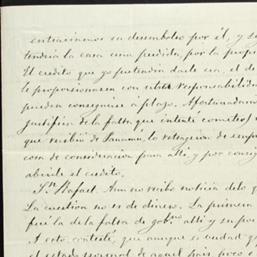 entraramos su desembolso por él, y se
tendria la casa una perdida, por la propi
El credito que yo pretendia darle era, el de
le proporcionaran con responsabilida
puedan conseguirse á plazo. Afortunadam
justifica de la falta que intenté cometer,
que recibí de Panamá, la
com de consideracion para allí y por consig
abrirle el credito.
Sn. Rafael. Aun no recibo noticia de lo q
La cuestion no es de dinero. La primera
fué la de la falta de gobno. allí y su po
A esto, contesté, que aunque es verdad q
el estado normal de aquel pais poco